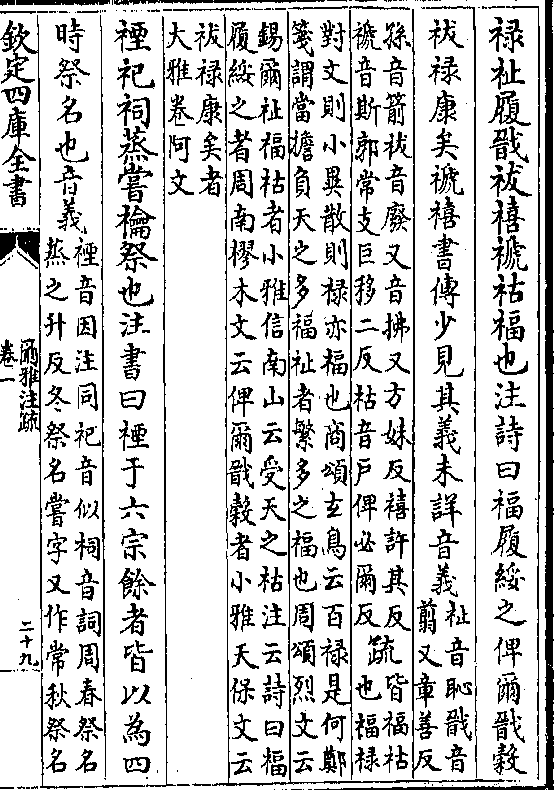 禄祉履戩祓禧禠祜福也注詩曰福履綏之俾爾戩穀
祓禄康矣禠禧書傳少見其義未詳音義
祉音恥戩音
翦又章善反
孫音箭祓音廢又音拂又方妹反禧許其反
禠音斯郭常支巨移二反祜音戸俾必爾反
疏皆福祜
也福禄
對文則小異散則禄亦福也商頌玄鳥云百禄是何鄭
箋謂當擔負天之多福祉者繁多之福也周頌烈文云
錫爾祉福祜者小雅信南山云受天之祜注云詩曰福
履綏之者周南樛木文云俾爾戩穀者小雅天保文云
祓禄康矣者
大雅卷阿文
禋祀祠蒸嘗禴祭也注書曰禋于六宗餘者皆以為四
時祭名也音義
禋音因注同祀音似祠音詞周春祭名
蒸之升反冬祭名嘗字又作常秋祭名
欽定四庫全書
爾雅注疏
卷一
二十九